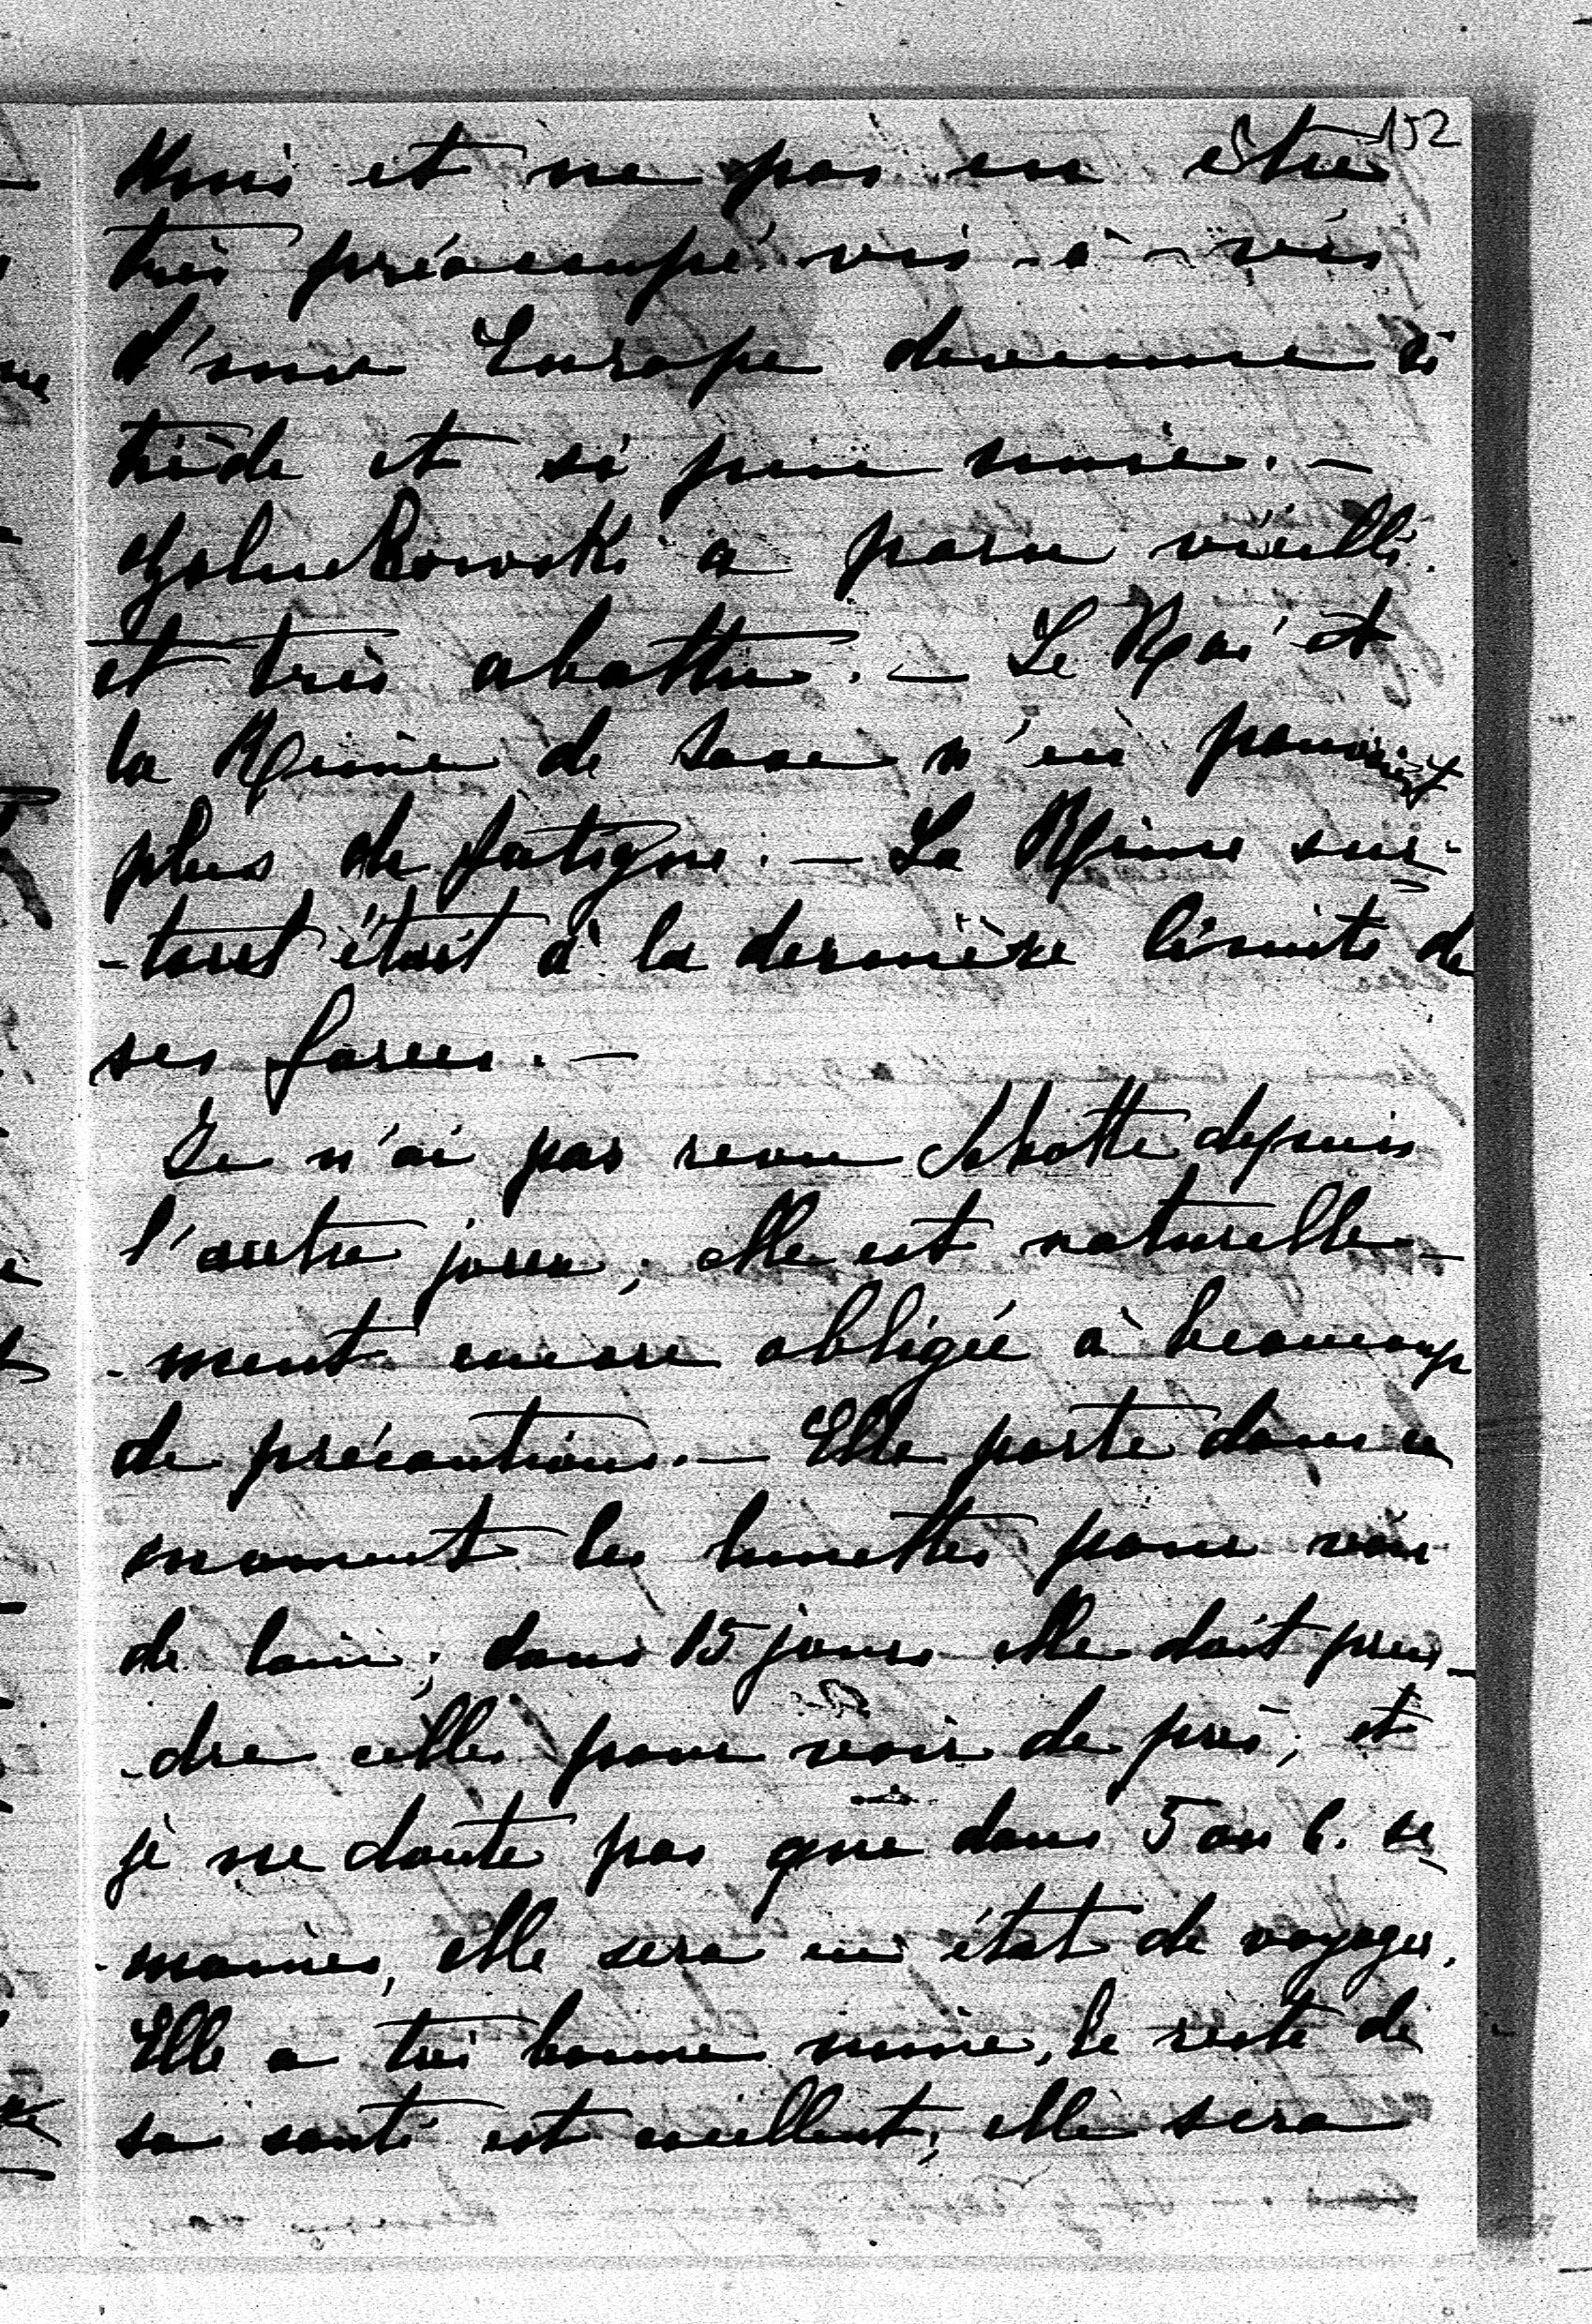 152
Unis et ne pas en être
très préoccupé vis-à-vis
d'une Europe devenue si
tiède et si peu unie. —
Goluchowski a paru vieilli
et très abattu. — Le Roi et
la Reine de Saxe n'en pouvaient
plus de fatigue. — La Reine sur-
-tout était à la dernière limite de
ses forces. —
Je n'ai pas revu depuis
l'autre jour, elle est naturelle-
-ment encore obligée à beaucoup
de précautions. — Elle porte dans ce
moment les lunettes pour voir
de loin; dans 15 jours elle doit pren-
-dre celles pour voir de près, et
je ne doute pas que dans 5 ou 6. se-
-maines, elle sera en état de voyager.
Elle a très bonne mine, le reste de
sa santé est excellent; elle sera